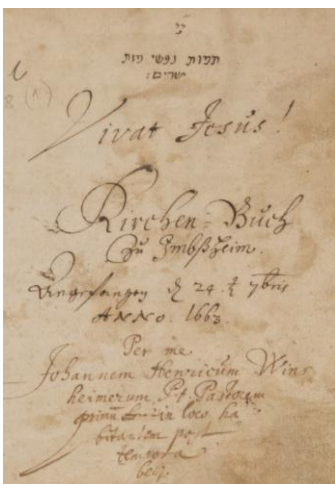 תמות נפשי מות
ישרים:
Vivat Jesus!
Kirchen-Buch
Zu Imbßheim.
Angefangen d 24. 7bris
ANNO. 1663.
Per me
Johannem Henricum Wins
heimerum P.t. Pastorem
primū in loco ha
bitantem post
tempora
belli.